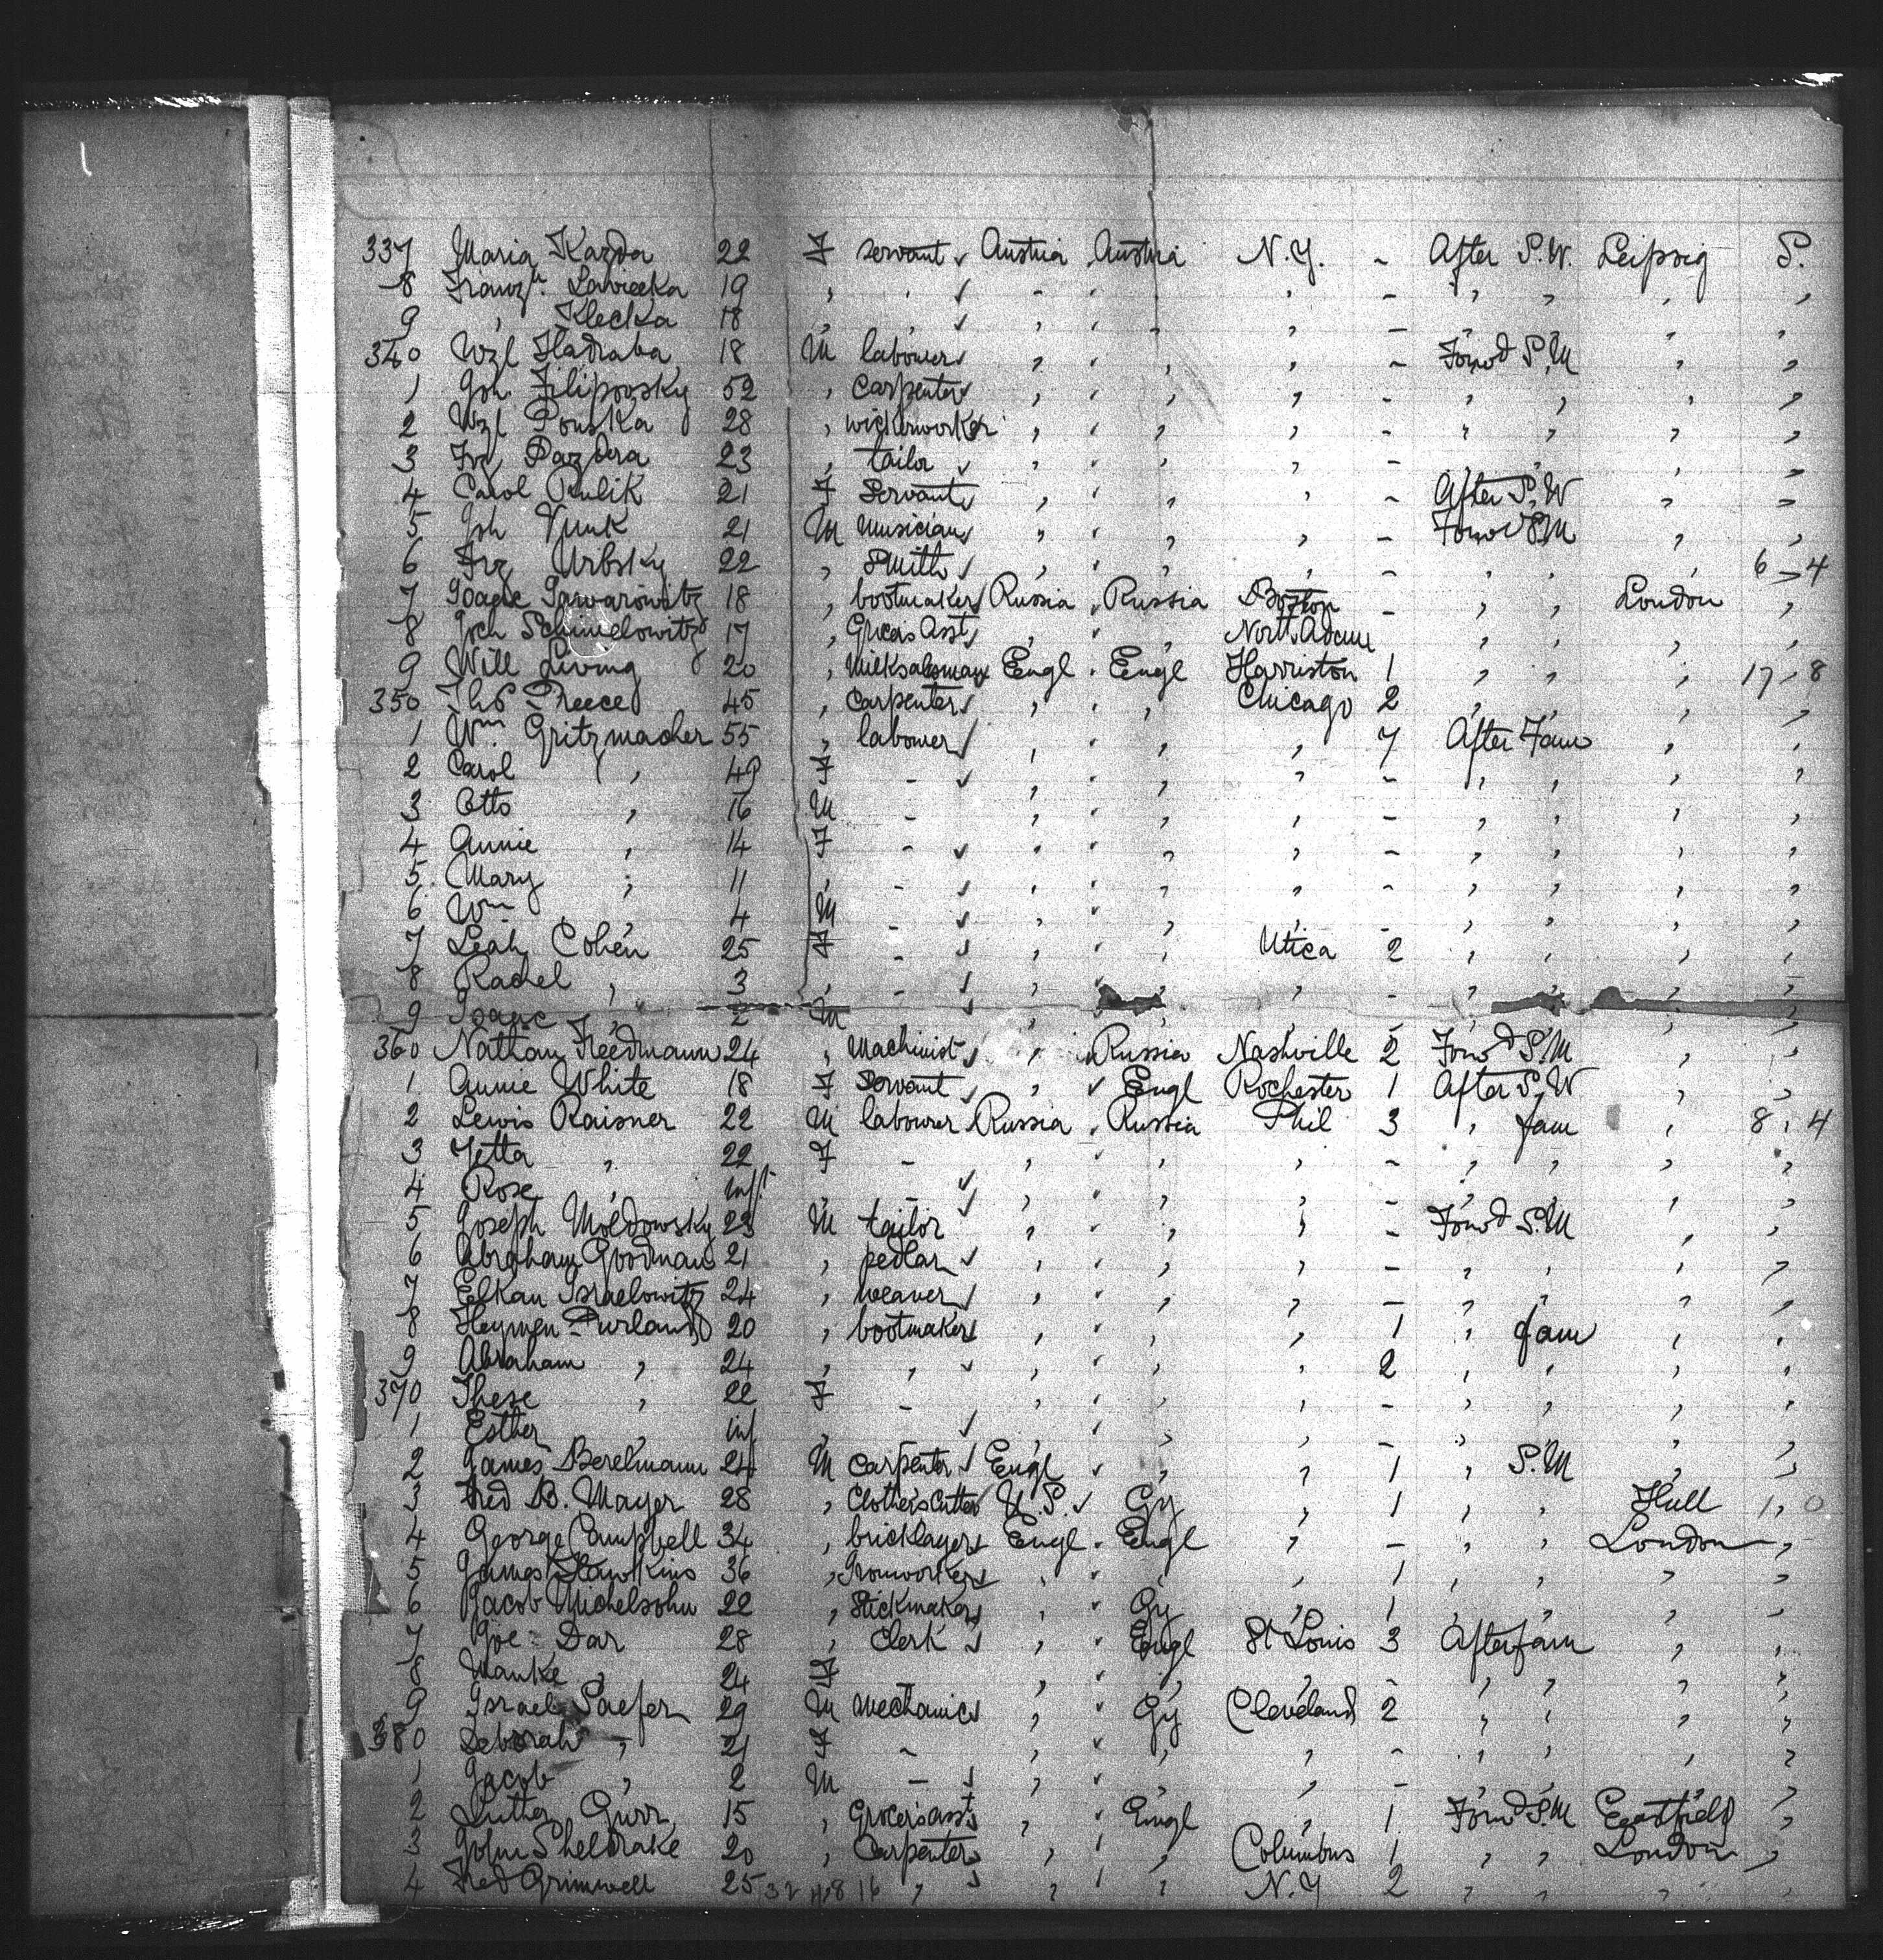 337 Maria Kazda 22 F servant ✓ Austria Austria N.Y. - After S.W. Leipzig S.
8 Franzka Lavicka 19 , , ✓ - , , - , , , ,
9 , Klecka 18 , , ✓ , , , , - , , , ,
340 Wzl Hadraba 18 M labourer ✓ , , , , - Forwd S.M , ,
1 Joh. Filipovsky 52 , carpenter ✓ , , , , - , , , ,
2 Wzl Pouska 28 , wickerworker , , , , - , , , ,
3 Frz Pazdera 23 , tailor ✓ , , , , - , , , ,
4 Carol Rulik 21 F Servant ✓ , , , - After S.W , ,
5 Joh Vunk 21 M musician ✓ , , , - Forwd S.M , ,
6 Frz Urbsky 22 , Smith ✓ , , , - , , , 6 , 4
7 Isaac 18 , bootmaker ✓ Russia , Russia Boston - , , London ,
8 Joch Schmelowitz 17 , Grocers Asst ✓ , , , North Adams , , , ,
9 Will Living 20 , Milksalesman Engl , Engl Harriston 1 , , , 17 , 8
350 Ths Preece 45 , Carpenter ✓ , , , Chicago 2 , , , ,
1 Wm. Gritzmacher 55 , labourer ✓ , , , , 7 After Fam , ,
2 Carol , 49 F - ✓ , , , , - , , , ,
3 Otto , 16 M - , , , , - , , , ,
4 Annie , 14 F - ✓ , , , , - , , , ,
5 Mary , 11 , - ✓ , , , , - , , , ,
6 Wm , 4 M - ✓ , , , , - , , , ,
7 Leah Cohen 25 F - ✓ , , , Utica 2 , , , ,
8 Rachel , 3 , - ✓ , , , , - , , , ,
9 Isaac , 2 M - ✓ , , , - , , , ,
360 Nathan Freedmann 24 , Machinist ✓ , Russia Nashville 2 Forwd S.M , ,
1 Annie White 18 F Servant ✓ , ✓ Engl Rochester 1 After S.W , ,
2 Lewis Raisner 22 M labourer Russia , Russia Phil 3 , fam , 8 , 4
3 Jetta , 22 F - , , , , - , , , ,
4 Rose , inft , - ✓ , , , , - , , , ,
5 Joseph Moldowsky 23 M tailor ✓ , , , , - Forwd S.M , ,
6 Abraham Goodman 21 , pedlar ✓ , , , , - , , , ,
7 Elkan Israelowitz 24 , weaver ✓ , , , , - , , , ,
8 Heymen Purland 20 , bootmaker ✓ , , , , 1 , fam , ,
9 Abraham , 24 , , ✓ , , , , 2 , , , ,
370 These , 22 F - , , , , - , , , ,
1 Esther , inf , - ✓ , , , , - , , , ,
2 James Berelmann 24 M Carpenter ✓ Engl ✓ , , 1 , S.M , ,
3 Fred B. Mayer 28 , Clothes Cutter U.S. ✓ Gy , 1 , , Hull 1 , 0
4 George Campbell 34 , bricklayer ✓ Engl , Engl , - , , London ,
5 James Hawkins 36 , Ironworker ✓ , , , , 1 , , , ,
6 Jacob Michelsohn 22 , Stickmaker ✓ , ✓ Gy , 1 , , , ,
7 Joe Dar 28 , Clerk ✓ , , Engl St Louis 3 After fam , ,
8 Manke , 24 F - , ✓ , , - , , , ,
9 Israel Saefer 29 M Mechanic ✓ , , Gy Cleveland 2 , , , ,
380 Deborah , 21 F - , ✓ , , - , , , ,
1 Jacob , 2 M - ✓ , ✓ , , - , , , ,
2 Luther Gurr 15 , Grocers asst ✓ , , Engl , 1 Forwd S.M ,
3 John Sheldrake 20 , Carpenter ✓ , , , Columbus 1 , , London ,
4 Fred Grimwell 25 , ✓ , , , N.Y 2 , , , ,